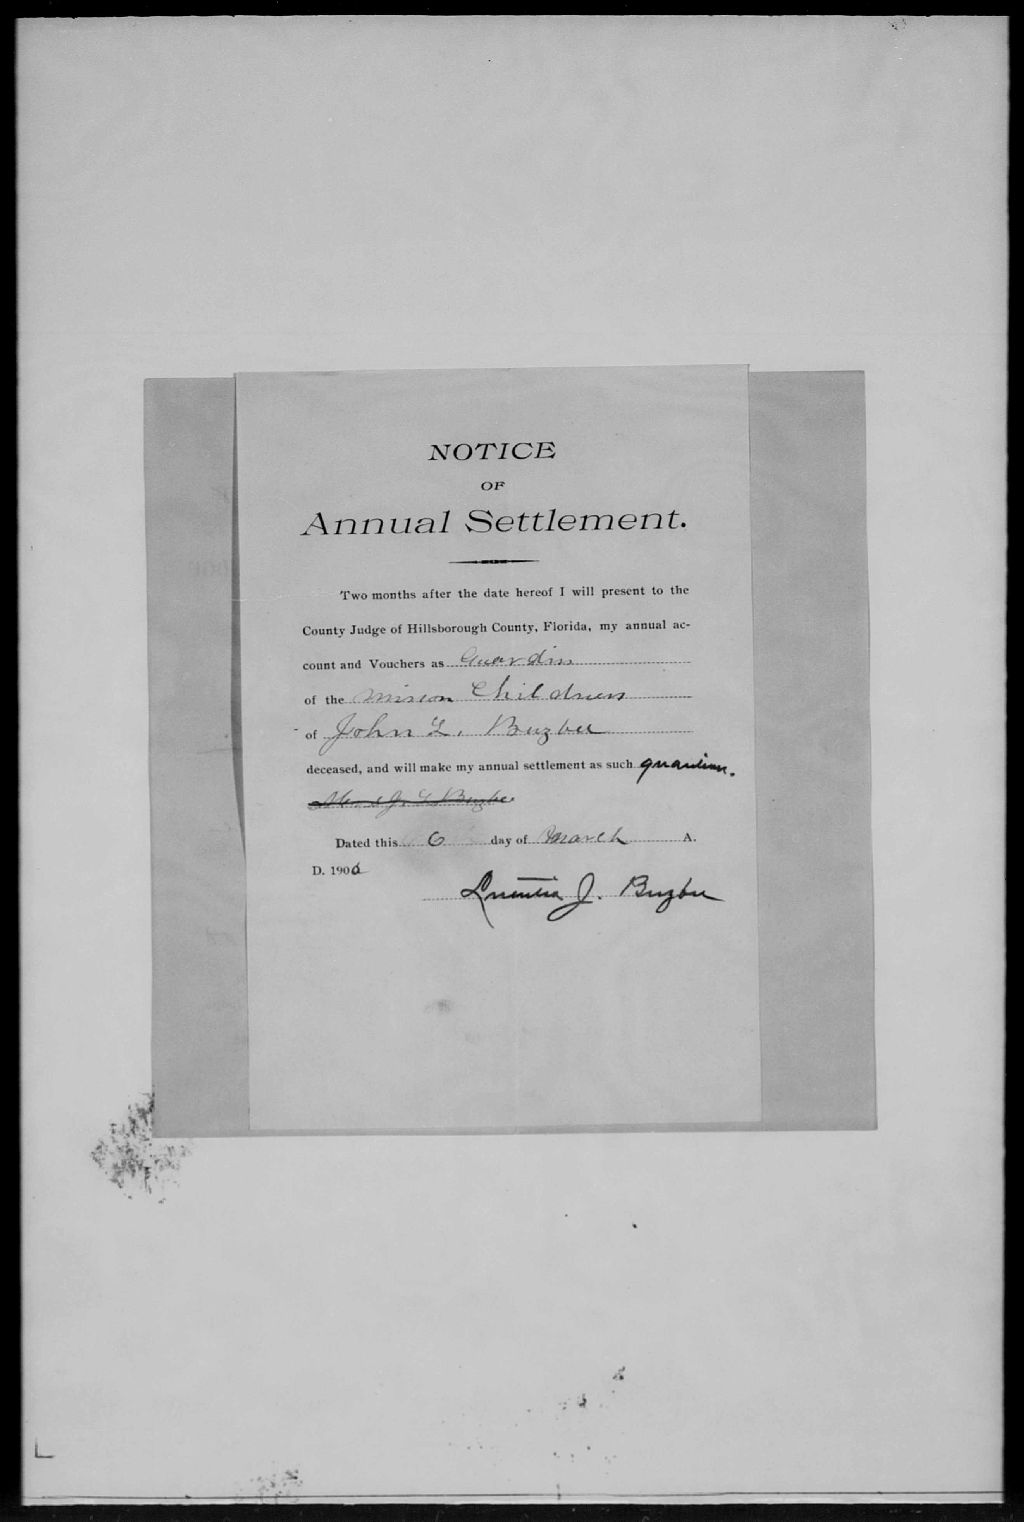 NOTICE
OF
Annual Settlement.
Two months after the date hereof I will present to the
County Judge of Hillsborough County, Florida, my annual ac-
count and Vouchers as Guardin
of the Children
of John L. Buzbee
deceased, and will make my annual settlement as such guardian.
Dated this 6 day of March A.
D. 1906
J. Buzbee